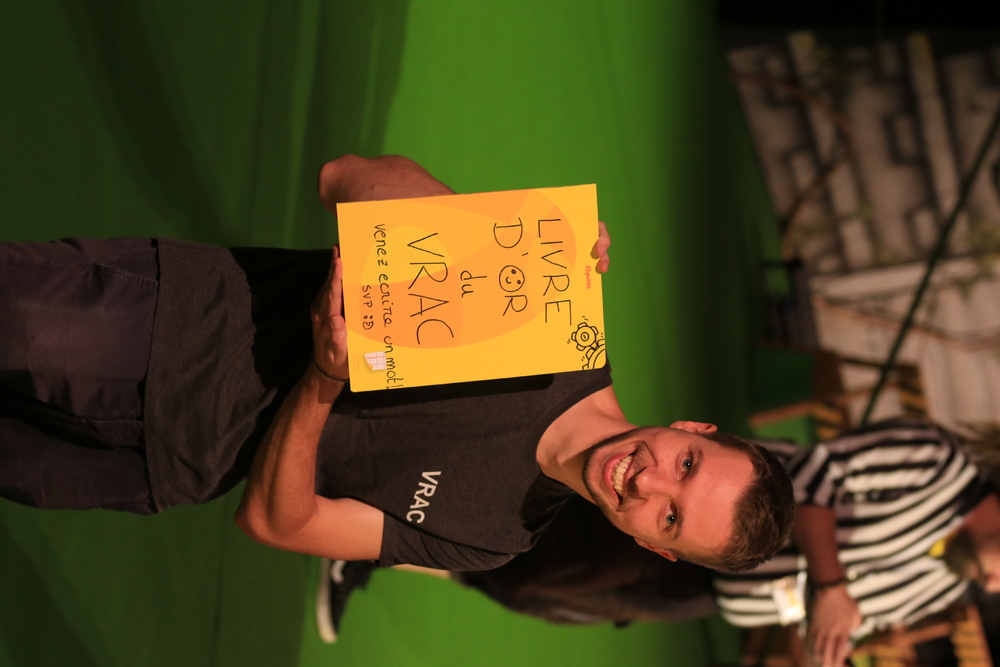 LIVRE
D'OR
du
VRAC
venez ecrire un mot!
SVP :D
VRAC